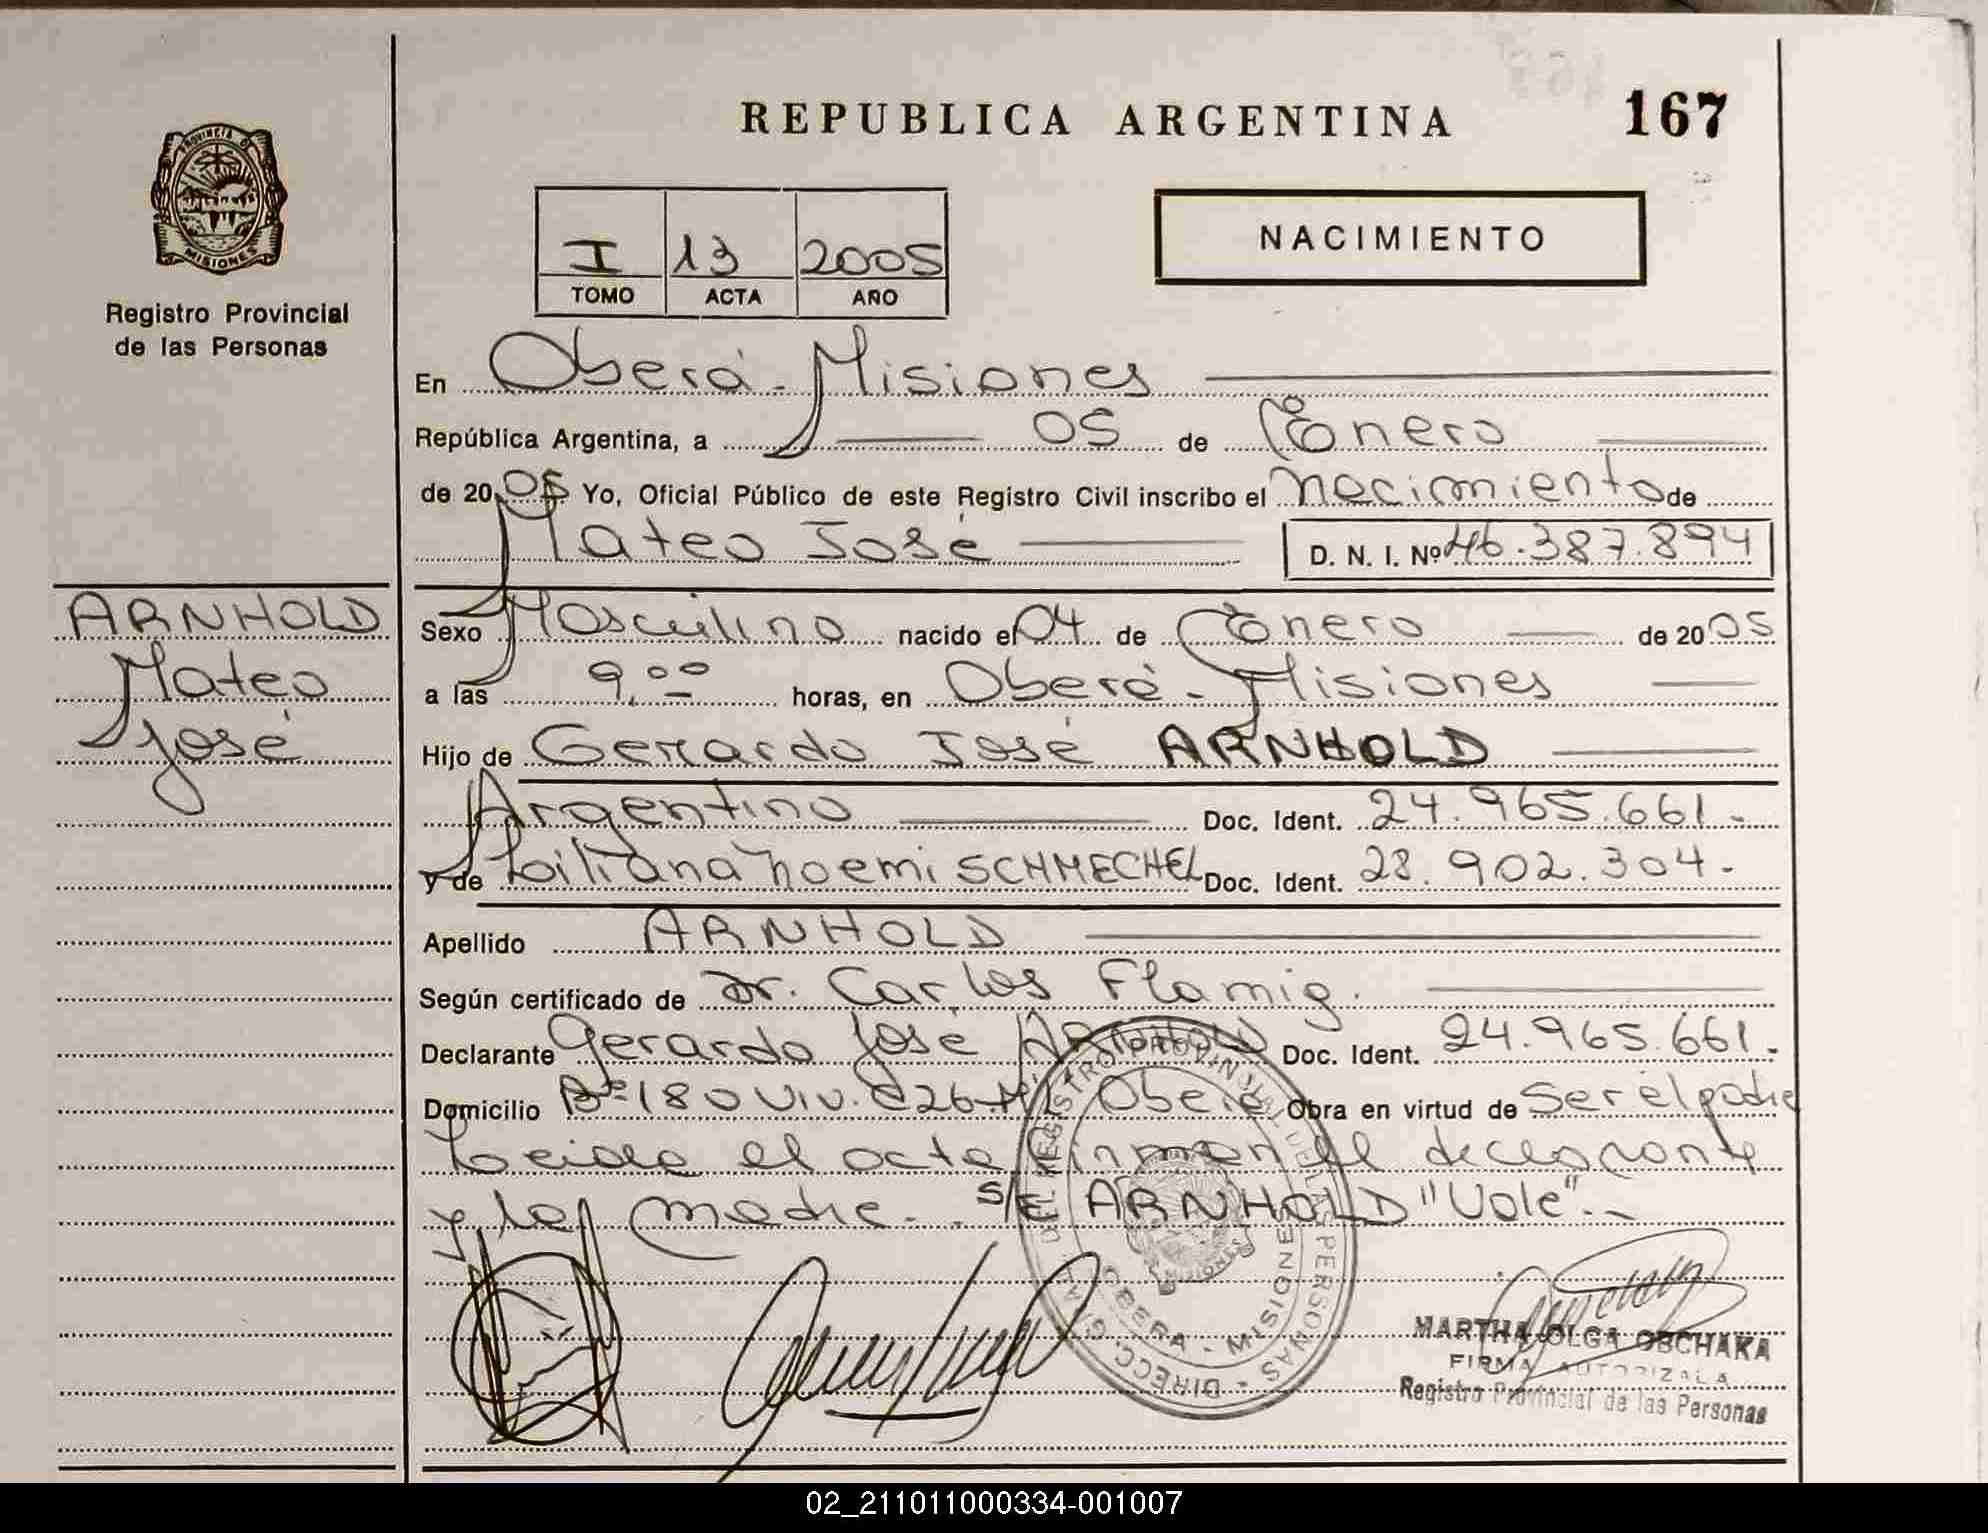 REPUBLICA ARGENTINA
167
PROVINCIA DE
MISIONES
Registro Provincial
de las Personas
I 13 2005
TOMO ACTA AÑO
NACIMIENTO
En Oberá - Misiones
República Argentina, a 05 de Enero
de 2005 Yo, Oficial Público de este Registro Civil inscribo el Nacimiento de
Mateo José D. N. I. Nº 46.387.894
ARNHOLD
Mateo
José
Sexo Masculino nacido el 04 de Enero de 2005
a las 9,00 horas, en Oberá - Misiones
Hijo de Gerardo José ARNHOLD
Argentino Doc. Ident. 24.965.661.-
y de Liliana Noemi SCHMECHEL Doc. Ident. 28.902.304.-
Apellido ARNHOLD
Según certificado de Dr. Carlos Flamig.
Declarante Gerardo José ARNHOLD Doc. Ident. 24.965.661.-
Domicilio Bº 180 Viv. C26 Oberá Obra en virtud de Ser el padre
Leida el acta firman el declarante
y la madre. S/E ARNHOLD "Vale".-
DIRECC. GRAL. DEL REGISTRO PROVINCIAL DE LAS PERSONAS
OBERA - MISIONES
MARTHA OLGA OBCHAKA
FIRMA AUTORIZADA
Registro Provincial de las Personas
02_211011000334-001007